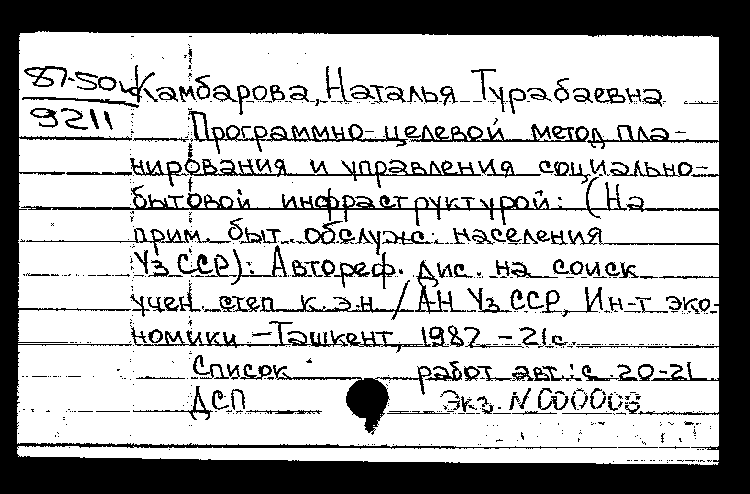 87-50к Камбарова, Наталья Турабаевна
9211
Программно-целевой метод пла-
нирования и управления социально-
бытовой инфраструктурой: (На
прим. быт. обслуж. населения
УзССР): Автореф. дис. на соиск
учен. степ к.э.н. / АН УзССР, Ин-т эко-
номики -Ташкент, 1987 -21с.
Список работ авт.: с. 20-21
ДСП Экз. N 000008